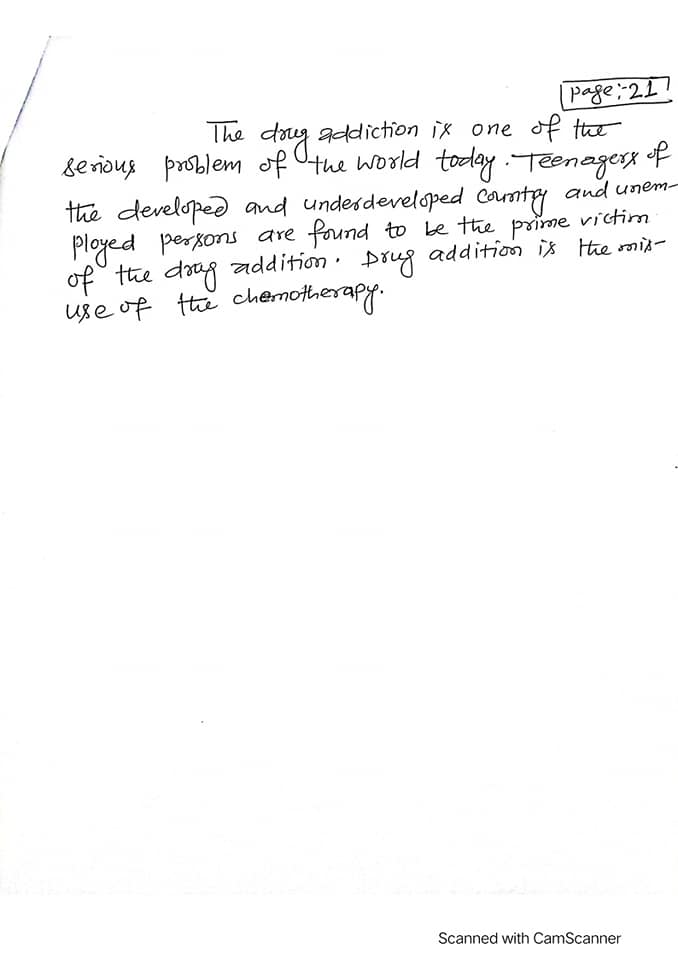 page:-21
The drug addiction is one of the
serious problem of the world today. Teenagers of
the developed and underdeveloped country and unem-
ployed persons are found to be the prime victim
of the drug addition. Drug addition is the mis-
use of the chemotherapy.
Scanned with CamScanner